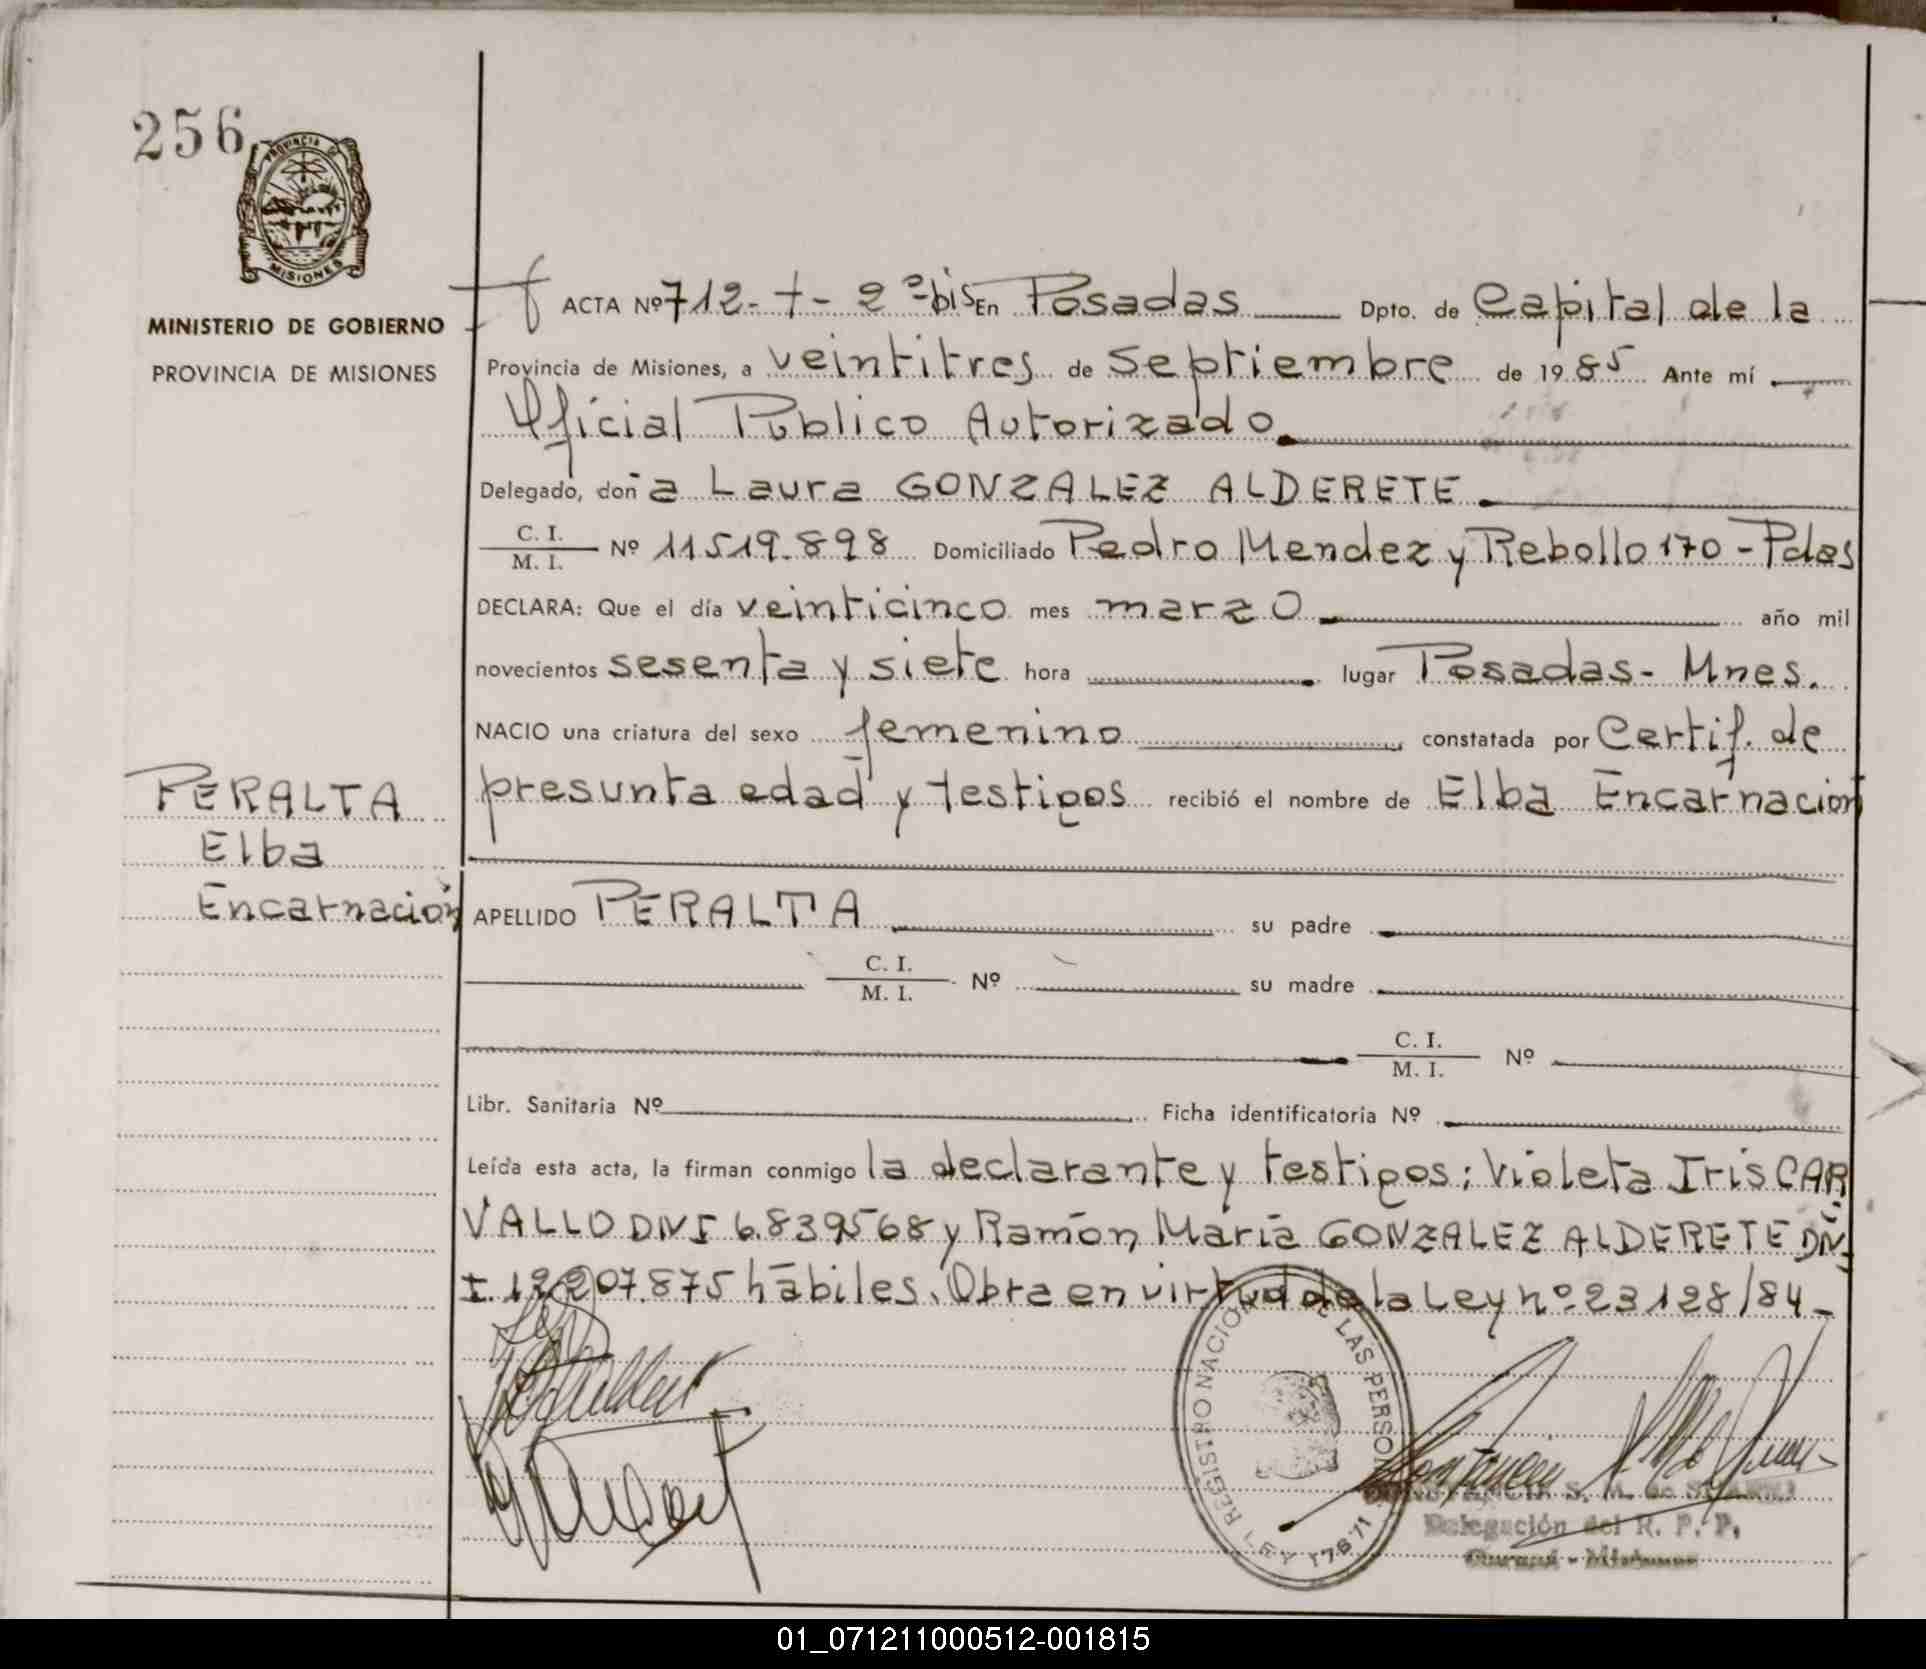 256
PROVINCIA DE
MISIONES
MINISTERIO DE GOBIERNO
PROVINCIA DE MISIONES
ACTA Nº 712- t - 2º bis En Posadas Dpto. de Capital de la
Provincia de Misiones, a veintitres de Septiembre de 1985 Ante mí
Oficial Público Autorizado
Delegado, doña Laura GONZALEZ ALDERETE
C. I.
M. I. Nº 11519.898 Domiciliado Pedro Mendez y Rebollo 170 - Pdas
DECLARA: Que el día veinticinco mes marzo año mil
novecientos sesenta y siete hora lugar Posadas- Mnes.
NACIO una criatura del sexo femenino constatada por Certif. de
presunta edad y testigos recibió el nombre de Elba Encarnación
PERALTA
Elba
Encarnación
APELLIDO PERALTA su padre
C. I.
M. I. Nº su madre
C. I.
M. I. Nº
Libr. Sanitaria Nº Ficha identificatoria Nº
Leída esta acta, la firman conmigo la declarante y testigos; Violeta Iris CAR
VALLO DNI 6.839568 y Ramón María GONZALEZ ALDERETE DN
I. 12207.875 hábiles. Obra en virtud de la Ley nº 23128/84-
REGISTRO NACIONAL DE LAS PERSONAS
LEY 17671
S. M. de
Delegación del R. P. P.
- Misiones
01_071211000512-001815